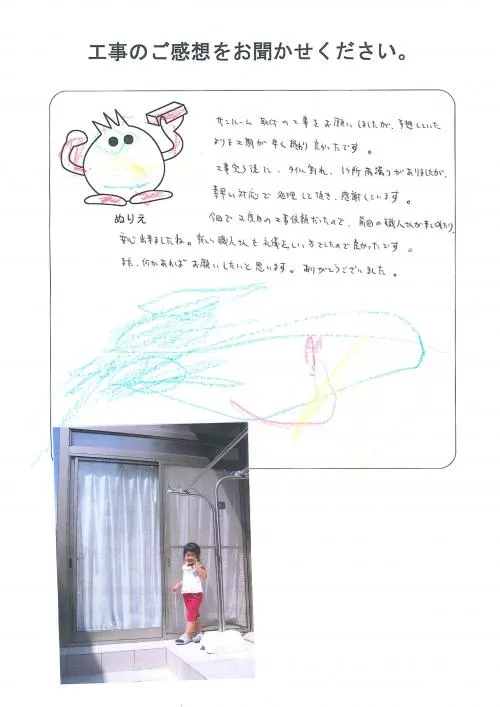 工事のご感想をお聞かせください。
サンルーム 取付の工事をお願いしましたが、予想していた
よりも工期が早く終わり良かったです。
工事完了後に、タイル割れ、1ヶ所雨漏りがありましたが、
素早い対応で処理して頂き、感謝しています。
ぬりえ
今回で2度目の工事依頼だったので、前回の職人さんが来てくれたり、
安心出来ましたね。新しい職人さんも礼儀正しい方でしたので良かったです。
また、何かあればお願いしたいと思います。ありがとうございました。